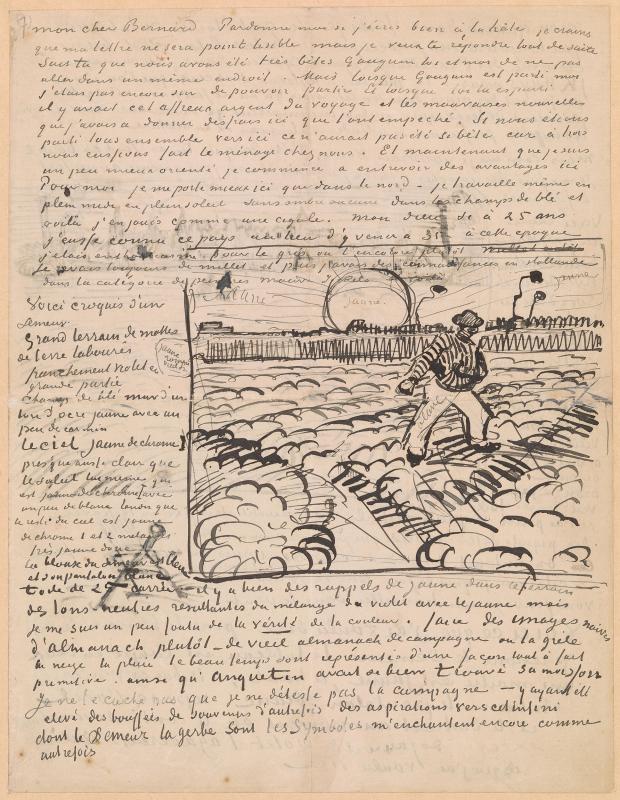 mon cher Bernard Pardonne moi si j'écris bien à la hâte, je crains
que ma lettre ne sera point lisible mais je veux te répondre tout de suite
Sais tu que nous avons été très bêtes Gauguin toi et moi de ne pas
aller dans un même endroit. Mais lorsque Gauguin est parti moi
j'étais pas encore sûr de pouvoir partir Et lorsque toi tu es parti
il y avait cet affreux argent du voyage et les mauvaises nouvelles
que j'avais à donner des frais ici qui l'ont empêché. Si nous étions
parti tous ensemble vers ici ce n'aurait pas été si bête car à trois
nous eussions fait le ménage chez nous. Et maintenant que je suis
un peu mieux orienté je commence à entrevoir des avantages ici
Pour moi je me porte mieux ici que dans le nord – je travaille même en
plein midi en plein soleil sans ombre aucune dans les champs de blé et
voilà j'en jouis comme une cigale. mon dieu si à 25 ans
j'eusse connu ce pays au lieu d'y venir à 35 à cette époque
pour le gris ou l'incolore plutôt
je avais toujours de millet et puis j'avais des connaissances en Hollande
dans la catégorie de peintres
jaune
jaune
Voici croquis d'un
Semeur.
Grand terrain de mottes
de terre labourés
franchement violet en
grande partie
Champ de blé mûr d'un
ton d'ocre jaune avec un
peu de carmin
Le ciel jaune de chrome 1
presqu'aussi clair que
le soleil lui même qui
est jaune de chrome 1 avec
un peu de blanc tandis que
le reste du ciel est jaune
de chrome 1 et 2 mélangés
très jaune donc
La blouse du semeur est bleue
et son pantalon blanc
toile de 25 carrée – il y a bien des rappels de jaune dans le terrain
des tons neutres resultants du mélange du violet avec le jaune mais
je me suis un peu foutu de la vérité de la couleur. faire des images naives
d'almanach plutôt – de vieil almanach de campagne ou la grêle
la neige la pluie le beau temps sont représentés d'une façon tout à fait
primitive. ainsi qu'Anquetin avait si bien trouvé sa moisson
Je ne te cache pas que je ne déteste pas la campagne – y ayant été
élevé des bouffées de souvenirs d'autrefois des aspirations vers cet infini
dont le Semeur la gerbe sont les symboles m'enchantent encore comme
autrefois